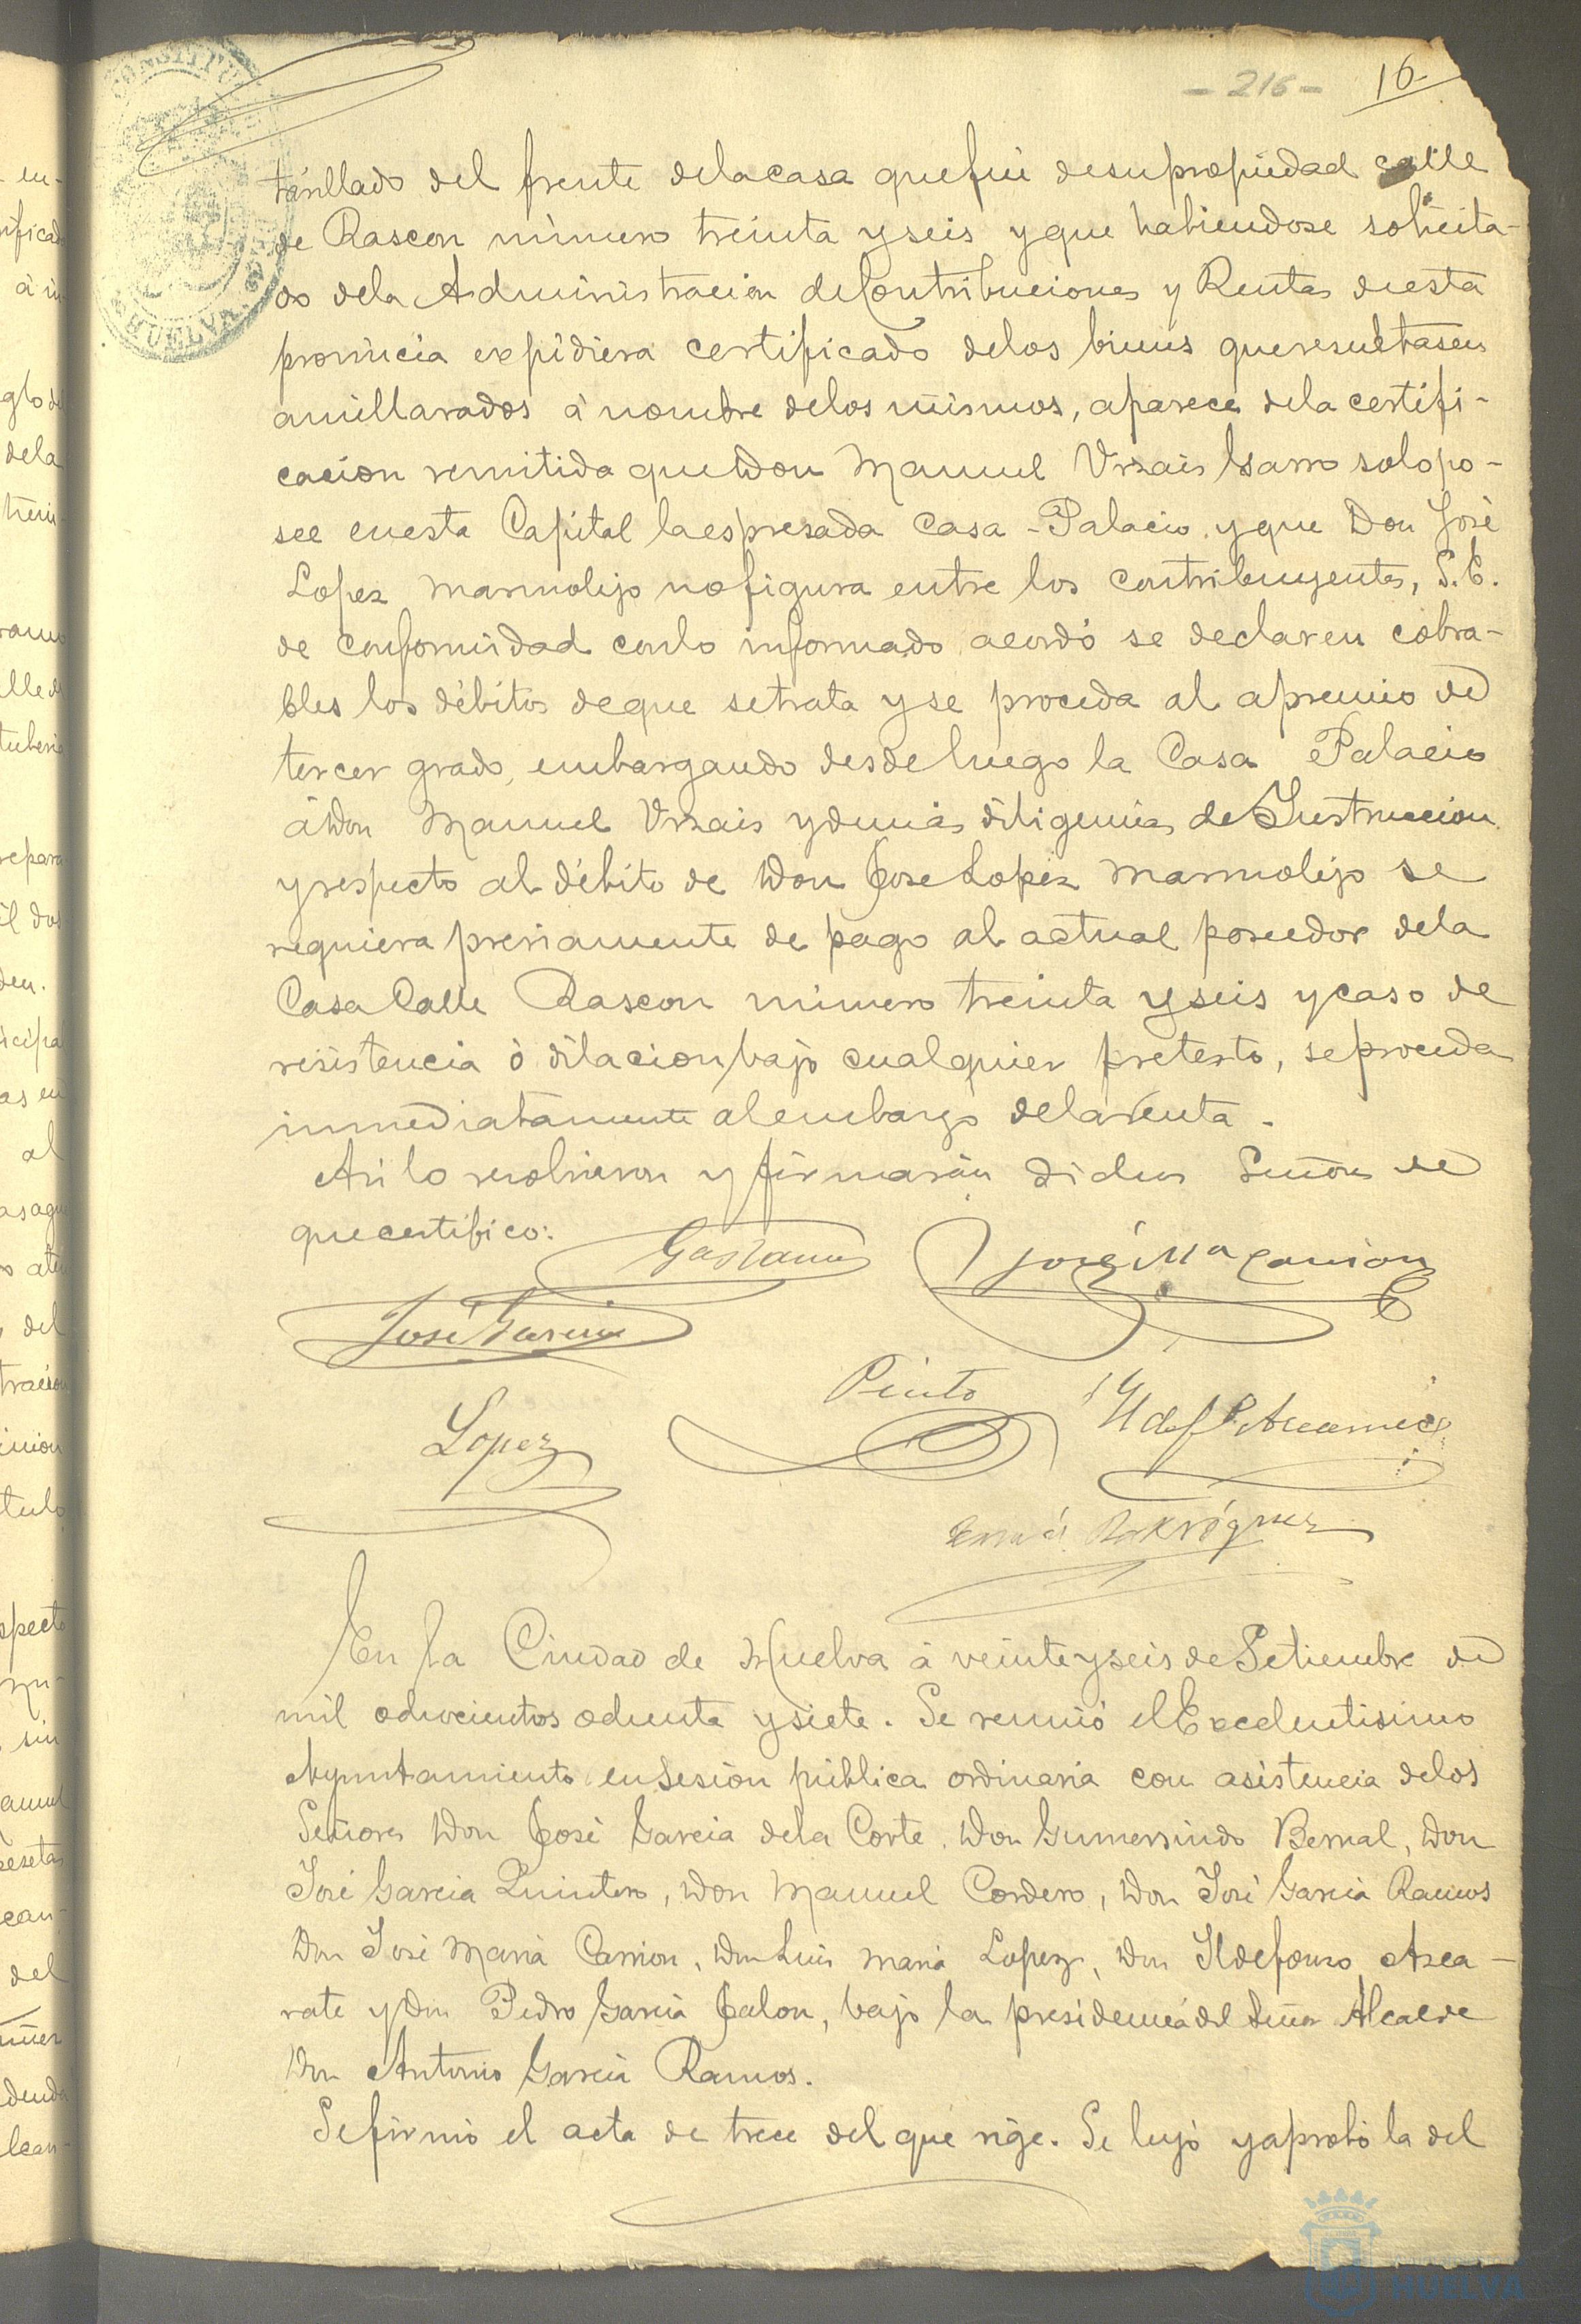 - 216 -
16
tarillado del frente dela casa que fué desu propiedad calle
de Rascon número treinta y seis y que habiendose solicita-
do dela Administracion de Contribuciones y Rentas de esta
provincia expidiera certificado delos bienes que resultasen
amillarados á nombre delos mismos, aparece dela certifi-
cacion remitida que Don Manuel Urzais solo po-
see en esta Capital la espresada Casa-Palacio y que Don José
Lopez Marmolijo no figura entre los contribuyentes, S.E.
de conformidad con lo informado, acordó se declaren cobra-
bles los débitos de que se trata y se proceda al apremio de
tercer grado, embargando desde luego la Casa Palacio
á Don Manuel Urzais y demás diligencias de Instruccion
y respecto al débito de Don José Lopez Marmolijo se
requiera previamente de pago al actual poseedor dela
Casa Calle Rascon número treinta y seis y caso de
resistencia ó dilacion bajo cualquier pretesto, se proceda
inmediatamente al embargo dela renta.
Asi lo resolvieron y firmarán dichos Señores de
que certifico:
José Mª Carrion
José Garcia
Pinto
Lopez
Rodríguez
En la Ciudad de Huelva á veinte y seis de Setiembre de
mil ochocientos ochenta y siete. Se reunió el Excelentisimo
Ayuntamiento en sesion pública ordinaria con asistencia delos
Señores Don José Garcia dela Corte, Don Gumersindo Bernal, Don
José Garcia Quintero, Don Manuel Cordero, Don José Garcia Ramos
Don José Maria Carrion, Don Luis Maria Lopez, Don Ildefonso Azca-
rate y Don Pedro Garcia Jalon, bajo la presidencia del Señor Alcalde
Don Antonio Garcia Ramos.
Se firmó el acta de trece del que rige. Se leyó y aprobó la del
HUELVA